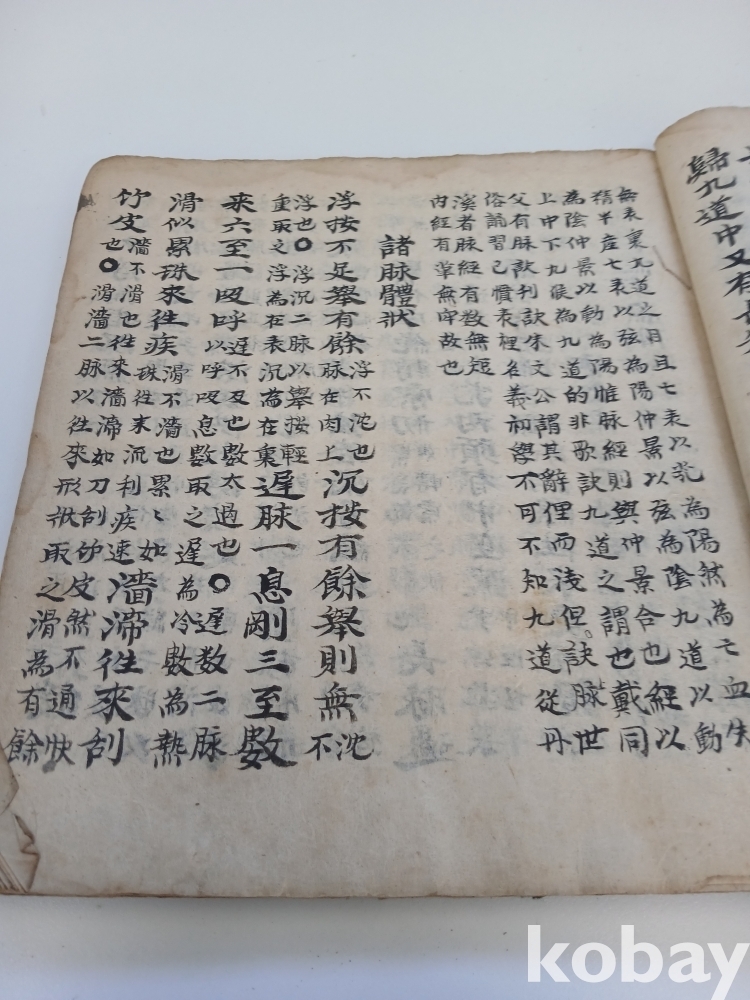 歸九道中又有
無表裏九道之目且七表以芤為陽然為亡血失
精半産七表以弦為陽仲景以弦為陰九道以動
為陰仲景以動為陽惟脉經則與仲景合也經以
上中下九候為九道的非歌訣九道之謂也戴同
父有脉訣刊訣朱文公謂其辭俚而浅但訣脉世
俗誦習已慣表裡名義初學不可不知九道從丹
溪著脉經有数無短
內經有革無牢故也
諸脉體狀
浮按不足擧有餘浮不沈也脉在肉上沉按有餘擧則無沈不
浮也○浮沉二脉以擧按輕重取之浮為在表沉為在裏遲脉一息剛三至數
來六至一吸呼遲不及也數太過也○遲数二脉以呼吸息數取之遲為冷數為熱
滑似累珠來往疾滑不濇也累〻如珠往來沉利疾速濇滯往來刮
竹皮濇不滑也往來濇滯如刀刮竹皮然不通快也○滑濇二脉以往來形狀取之滑為有餘
kobay